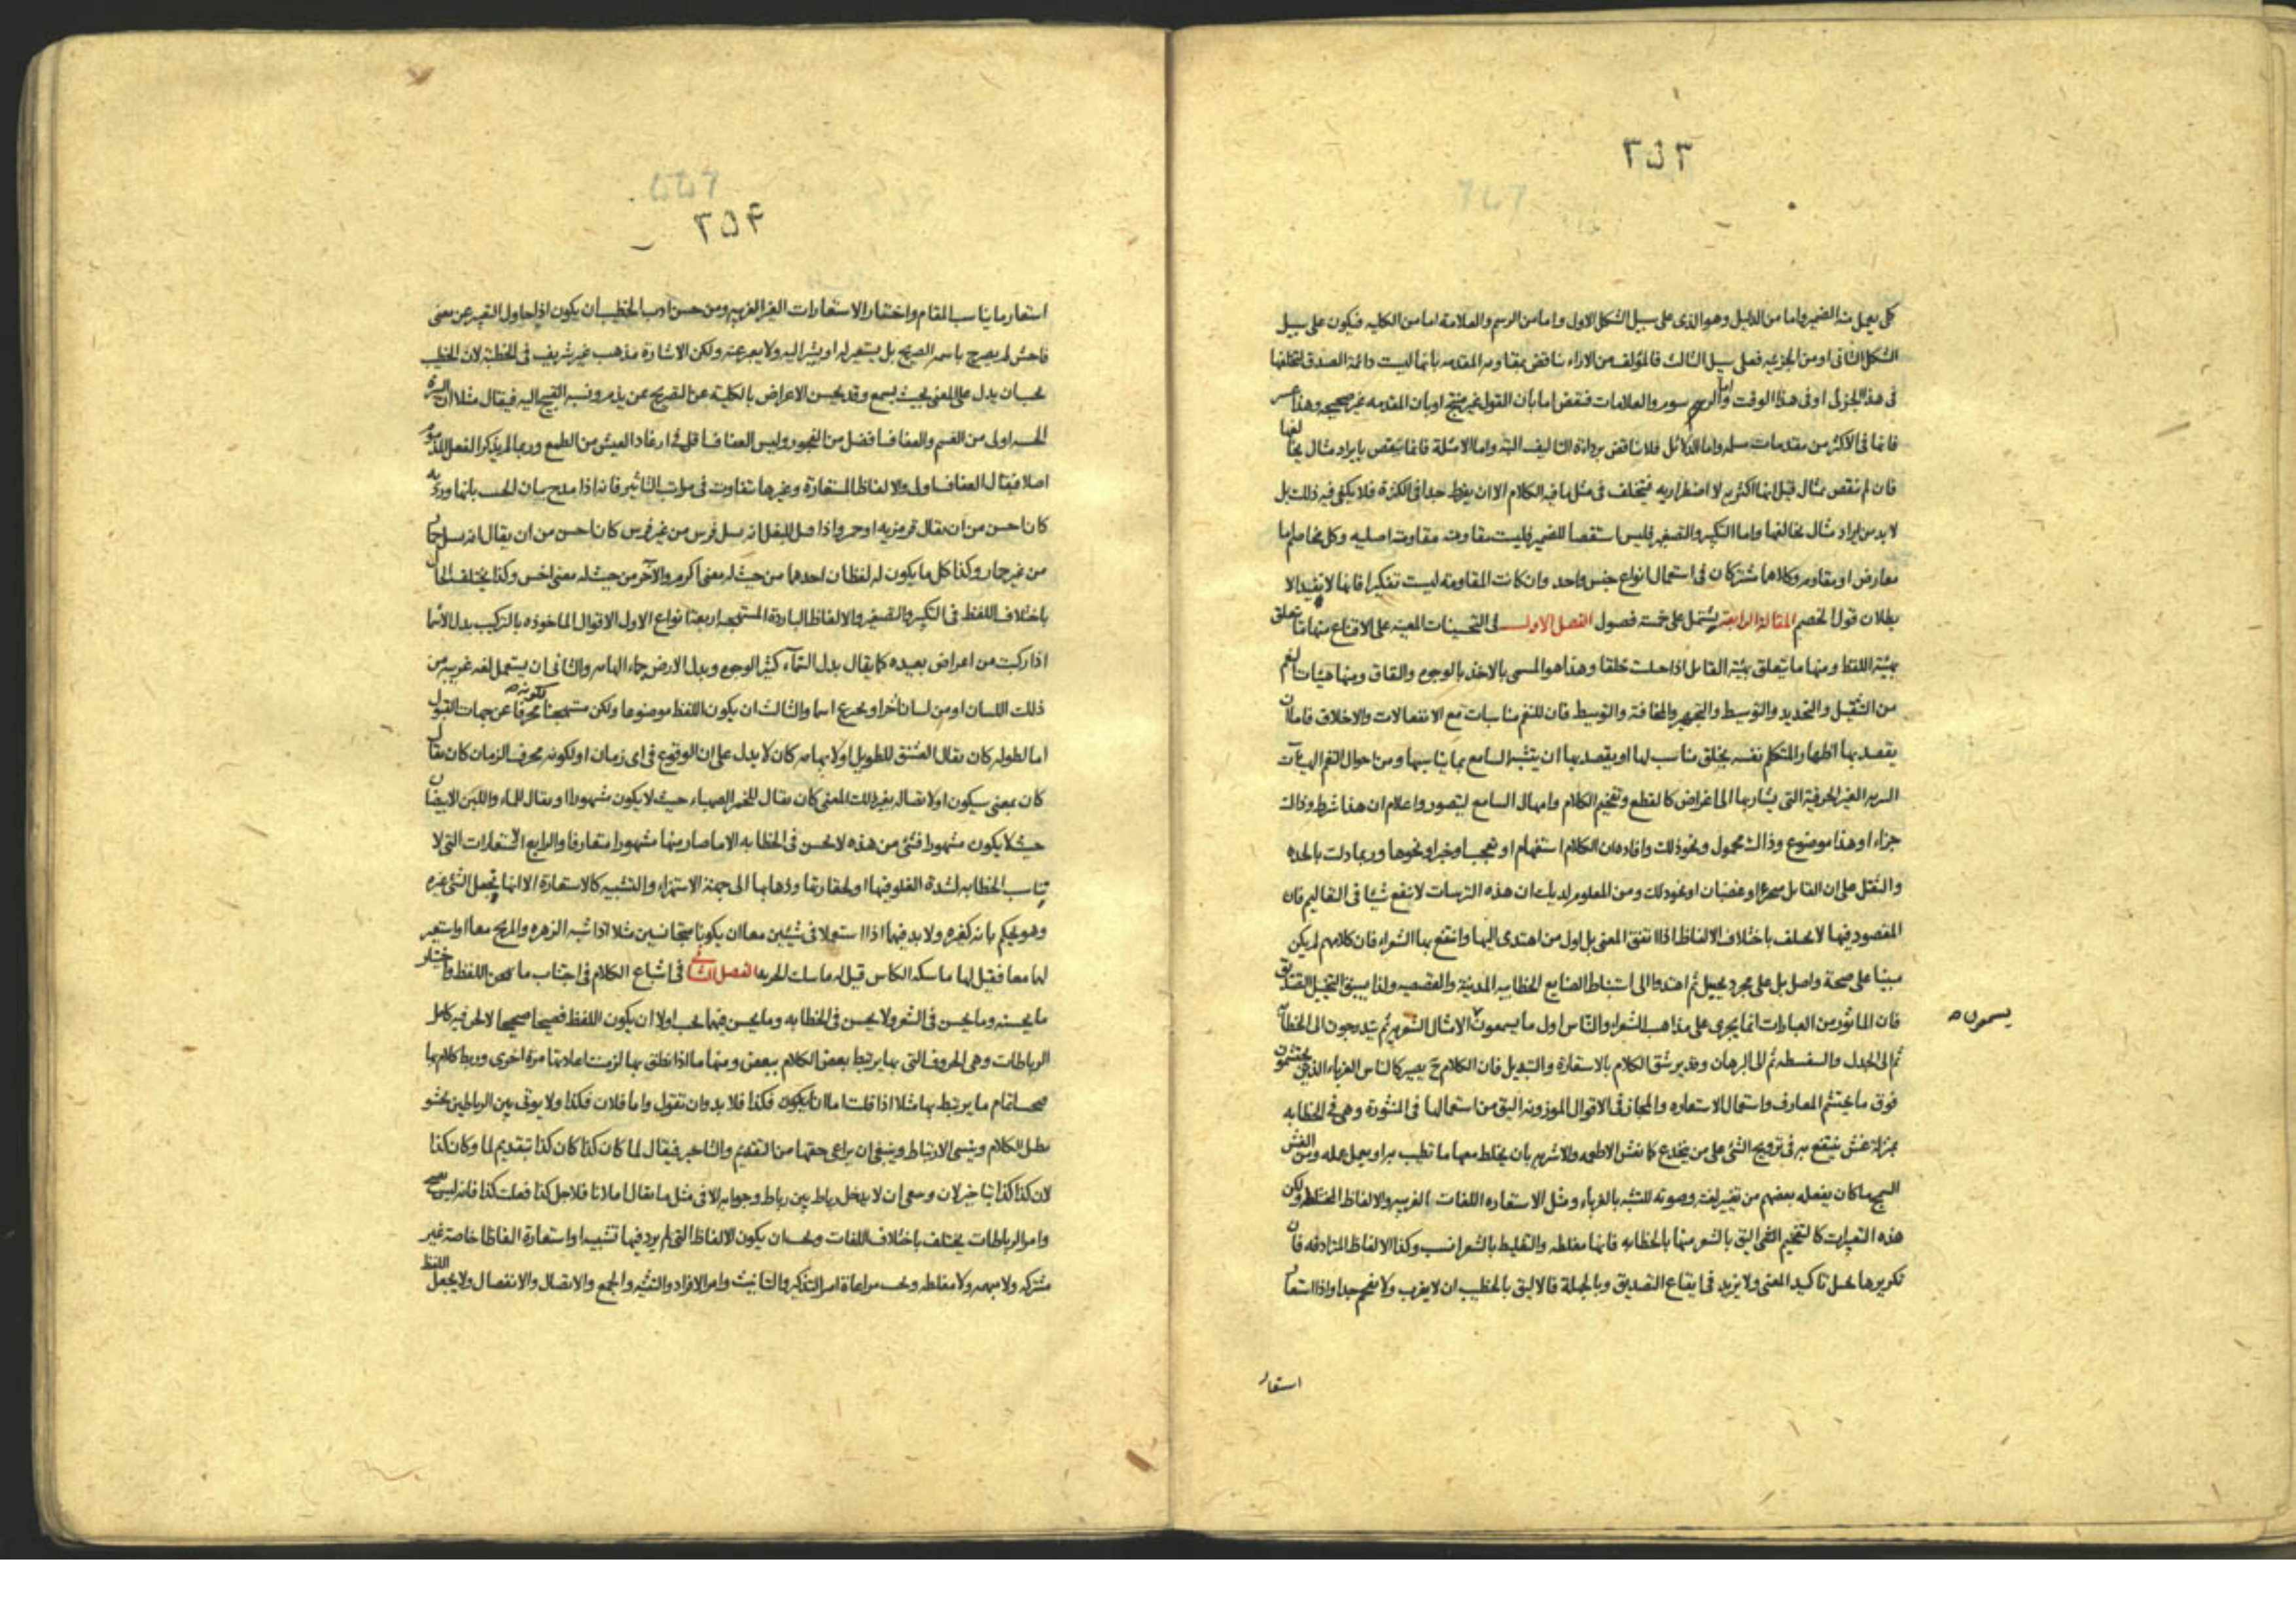 ٢٥٣
كل يعمل منه الضمير واما من الدليل وهو الذى على سبيل الشكل الاول واما من الرسم والعلامة اما من الكليه فيكون على سبيل
الشكل الثانى او من الجزئيه فعلى سبيل الثالث فالمؤلف من الاراء يناقض بمقاومه المقدمه بانها ليست دائمة الصدق لتخلفها
فى هذا الجزئى او فى هذا الوقت واما الرسوم والعلامات فتنقض اما بان القول غير منتج او بان المقدمه غير صحيحه وهذا
فانها فى الاكثر من مقدمات مسلمه واما الدلائل فلا يناقض برداءة التاليف البته واما الامثلة فانما ينقض بايراد مثال يخالفها
فان لم ينقض بمثال قيل انها اكثريه لا اضطراريه فيتخلف فى مثل ما فيه الكلام الا ان يفرط جدا فى الكثرة فلا يكفى فيه ذلك بل
لا بد من ايراد مثال يخالفها واما التكبير والتصغير فليس استقصا للضمير فليست مقاومته مقاومة اصليه وكل مخاصم اما
معارض او مقاوم وكلاهما مشتركان فى استعمال انواع جنس واحد وان كانت المقاومة ليست تفكيرا فانها لا تفيد الا
بطلان قول الخصم المقالة الرابعة يشتمل على خمسة فصول الفصل الاول فى التحسينات المعينه على الاقناع منها ما يتعلق
بهيئة اللفظ ومنها ما يتعلق بهيئة القائل اذا جعلت خلقا وهذا هو المسمى بالاخذ بالوجوه والنفاق ومنها هيئات النغم
من التثقيل والتحديد والتوسيط والتجهير والمخافتة والتوسط فان للنغم مناسبات مع الانفعالات والاخلاق فاما ان
يقصد بها اظهار المتكلم نفسه بخلق مناسب لها او يقصد بها ان يتشبه السامع بما يناسبها ومن احوال النغم الهيآت
الغير الحرفية التى يشار بها الى اغراض كالقطع وتفخيم الكلام وامهال السامع ليتصور واعلام ان هذا شرط وذلك
جزاء او هذا موضوع وذاك محمول ونحو ذلك وافاده ان الكلام استفهام او تعجب او خبر او نحوها وربما دلت بالحده
والثقل على ان القائل متحير او غضبان او نحو ذلك ومن المعلوم لديك ان هذه التزيينات لا ينفع شيئا فى التعاليم فان
المقصود فيها لا يختلف باختلاف الالفاظ اذا اتفق المعنى بل اول من اهتدى اليها وانتفع بها الشعراء فان كلامهم لم يكن
مبنيا على صحة واصل بل على مجرد تخييل ثم اهتدوا الى استنباط الصنايع الخطابيه المدنيّة والقصصيه ولذا يسبق التخيّل التصديق
فان الماثور من العبارات انما يجرى على مذاهب الشعراء والناس اول ما يسمعون الامثال الشعريه ثم يتدرجون الى الخطابة
يسمرون ص
ثم الى الجدل والسفسطه ثم الى البرهان وقد يرشق الكلام بالاستعارة والتبديل فان الكلام ح يصير كالناس الغرباء الذين يحتشمون
فوق ما يحتشم المعارف واستعمال الاستعاره والمجاز فى الاقوال الموزونه اليق من استعمالها فى المنثورة وهى فى الخطابه
بمنزلة غش ينتفع به فى ترويج الشئ على من ينخدع كما تغش الاطعمه والاشربه بان يخلط معها ما تطيب به او يعمل عمله ومن الغش
السمج ما كان يفعله بعضهم من تغيير لغته وصوته للتشبه بالغرباء ومثل الاستعاره اللغات الغريبه والالفاظ المختلطة ولكن
هذه التغييرات كالتفخيم النغمى اليق بالشعر منها بالخطابه فانها مغلطه والتغليط بالشعر انسب وكذا الالفاظ المترادفه فان
تكريرها لعلّ تاكيد المعنى ولا يزيد فى ايقاع التصديق وبالجملة فالاليق بالخطيب ان لا يغرب ولا يفخم جدا واذا استعار
استعار
٢٥٤
استعار ما يناسب المقام واختار الاستعارات الغير الغريبه ومن حسن ادب الخطيب ان يكون اذا حاول التعبير عن معنى
فاحش لم يصرح باسمه الصريح بل يستعير له او يشير اليه ولا يعبر عنه ولكن الاشارة مذهب غير شريف فى الخطبة لان الخطيب
يجب ان يدل على المعنى بحيث يسمع وقد يحسن الاعراض بالكلية عن التصريح عن يذم ونسبه القبيح اليه فيقال مثلا ان السيرة
الحسنه اولى من الغشم والعفاف افضل من الفجور وليس العفاف اقل فى ارغاد العيش من الطمع وربما لم يذكر الفعل المذموم
اصلا فيقال العفاف اولى والالفاظ المستعارة وغيرها تتفاوت فى مراتب التاثير فانه اذا مدح بنان الحسب بانها ورديه
كان احسن من ان يقال قرمزيه او حمر واذا قيل للبغل انه نسل فرس من غير فرس كان احسن من ان يقال انه نسل حمار
من غير حمار وكذا كل ما يكون له لفظان احدهما من حيث له معنى اكرم والآخر من حيث له معنى اخس وكذا يختلف الحال
باختلاف اللفظ فى التكبير والتصغير والالفاظ الباردة المستهجنه اربعة انواع الاول الاقوال الماخوذه بالتركيب بدل الاسما
اذا ركبت من اعراض بعيده كما يقال بدل السّماء كثير الوجوه وبدل الارض والثانى ان يستعمل لغه غريبه من
ذلك اللسان او من لسان آخر او يخترع اسما والثالث ان يكون اللفظ موضوعا ولكن مستهجنا لكونه محرفا عن جهات القبول
اما لطوله كان يقال العشنق للطويل او لابهامه كان لا يدل على ان الوقوع فى اى زمان او لكونه محرف الزمان كان يقال
كان بمعنى سيكون او لانتقاله بغير ذلك المعنى كان يقال للخمر الصهباء حيث لا يكون مشهورا او يقال للماء واللبن الابيضان
حيث لا يكون مشهورا فشئ من هذه لا يحسن فى الخطابه الا ما صار منها مشهورا متعارفا والرابع الاستعارات التى لا
يناسب الخطابه لشدة الغلو فيها او لحقارتها وذهابها الى جهة الاستهزاء والتشبيه كالاستعارة الا انها تجعل الشئ غيره
وهو يحكم بانه كغيره ولا بد فيهما اذا استعملا فى شيئين معا ان يكونا متجانسين مثلا اذا شبه الزهره والمريخ معا او استعير
لهما معا فقيل لها ماسكه الكاس قيل له ماسك الحربه الفصل الثانى فى اشباع الكلام فى اجتناب ما يهجن اللفظ واختيار
ما يحسنه وما يحسن فى الشعر ولا يحسن فى الخطابه وما يحسن فيهما يجب اولا ان يكون اللفظ فصيحا صحيحا لا لحن فيه كامل
الرباطات وهى الحروف التى بها يرتبط بعض الكلام ببعض ومنها ما اذا نطق بها لزمت اعادتها مرة اخرى وربط كلام بها
فيجب اتمام ما يرتبط بها مثلا اذا قلت اما ان يكون فكذا فلا بد وان تقول واما فلان فكذا ولا يوتى بين الرباطين بحشو
يطيل الكلام وينسى الارتباط وينبغى ان يراعى حقها من التقديم والتاخير فيقال لما كان كذا كان كذا بتقديم لما وكان كذا
لان كذا كذا بتاخير لان وينبغى ان لا يدخل رباط بين رباط وجوابه الا فى مثل ما يقال اما اذا فلاجل كذا فعلت كذا فانه ليس
وامر الرباطات يختلف باختلاف اللغات ويجب ان يكون الالفاظ التى لم يرد فيها تشبيها او استعارة الفاظا خاصة غير
مشتركه ولا مبهمه ولا مغلطه ويجب مراعاة امر التذكير والتانيث وامر الافراد والتثنيه والجمع والاتصال والانفصال ولا يجعل اللفظ